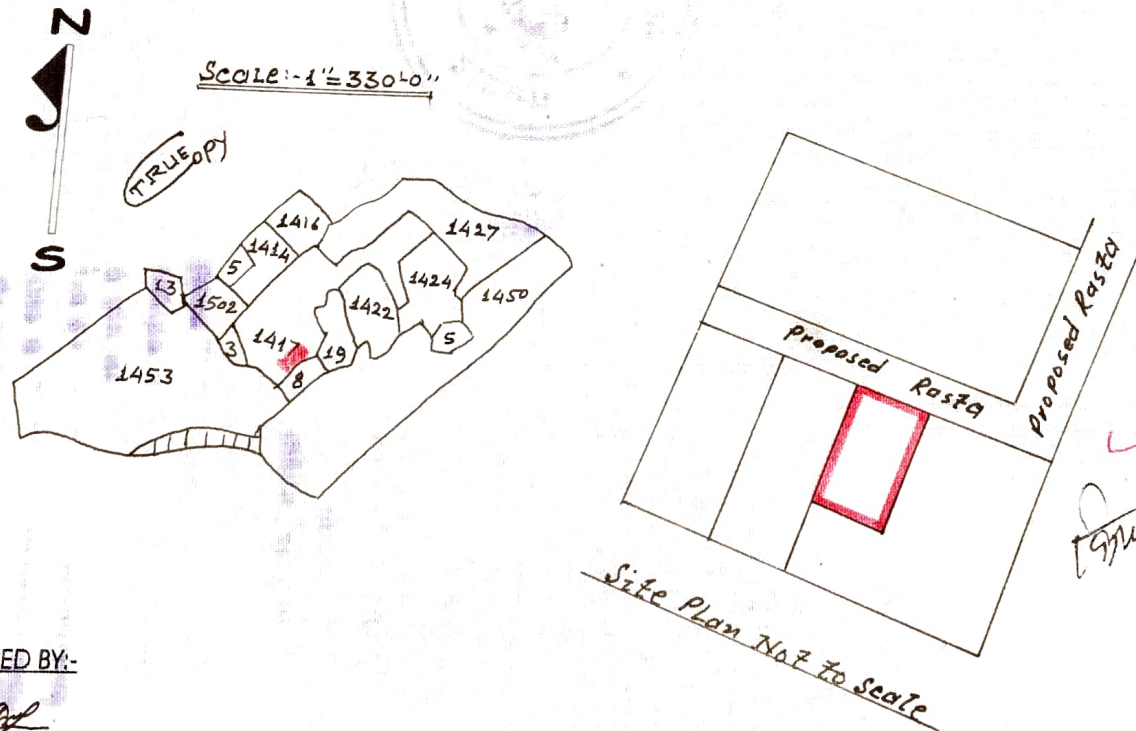 N
Scale:- 1"=330'-0"
TRUE COPY
S
1416
1427
1414
5
13
1502
1424
1450
1422
3
1417
19
5
8
1453
proposed Rasta
Proposed Rasta
Site Plan Not to scale
ED BY:-